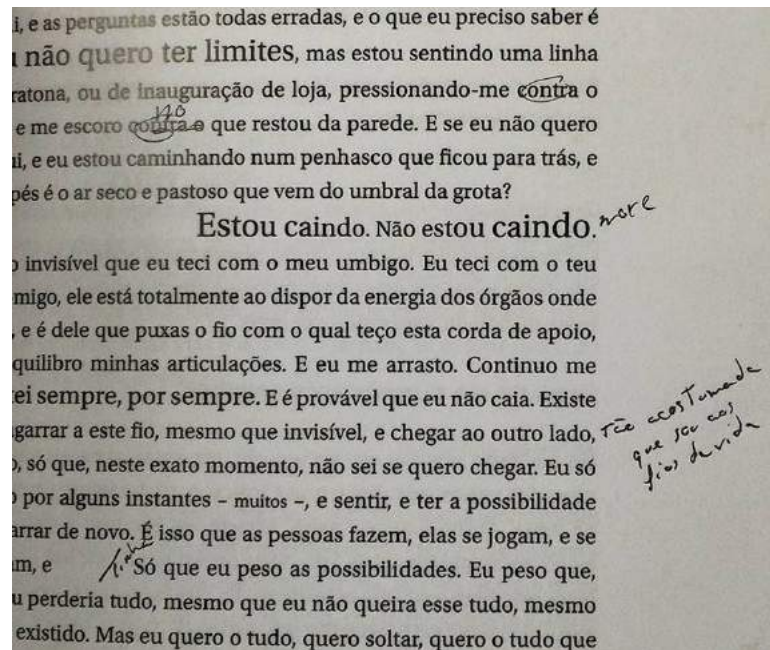 i, e as perguntas estão todas erradas, e o que eu preciso saber é
não quero ter limites, mas estou sentindo uma linha
ratona, ou de inauguração de loja, pressionando-me contra o
no
e me escoro contra o que restou da parede. E se eu não quero
ui, e eu estou caminhando num penhasco que ficou para trás, e
pés é o ar seco e pastoso que vem do umbral da grota?
Estou caindo. Não estou caindo.
note
o invisível que eu teci com o meu umbigo. Eu teci com o teu
migo, ele está totalmente ao dispor da energia dos órgãos onde
, e é dele que puxas o fio com o qual teço esta corda de apoio,
quilibro minhas articulações. E eu me arrasto. Continuo me
ei sempre, por sempre. E é provável que eu não caia. Existe
garrar a este fio, mesmo que invisível, e chegar ao outro lado,
tão acostumada
que sou aos
fios da vida
o, só que, neste exato momento, não sei se quero chegar. Eu só
o por alguns instantes – muitos –, e sentir, e ter a possibilidade
arrar de novo. É isso que as pessoas fazem, elas se jogam, e se
m, e Só que eu peso as possibilidades. Eu peso que,
u perderia tudo, mesmo que eu não queira esse tudo, mesmo
existido. Mas eu quero o tudo, quero soltar, quero o tudo que